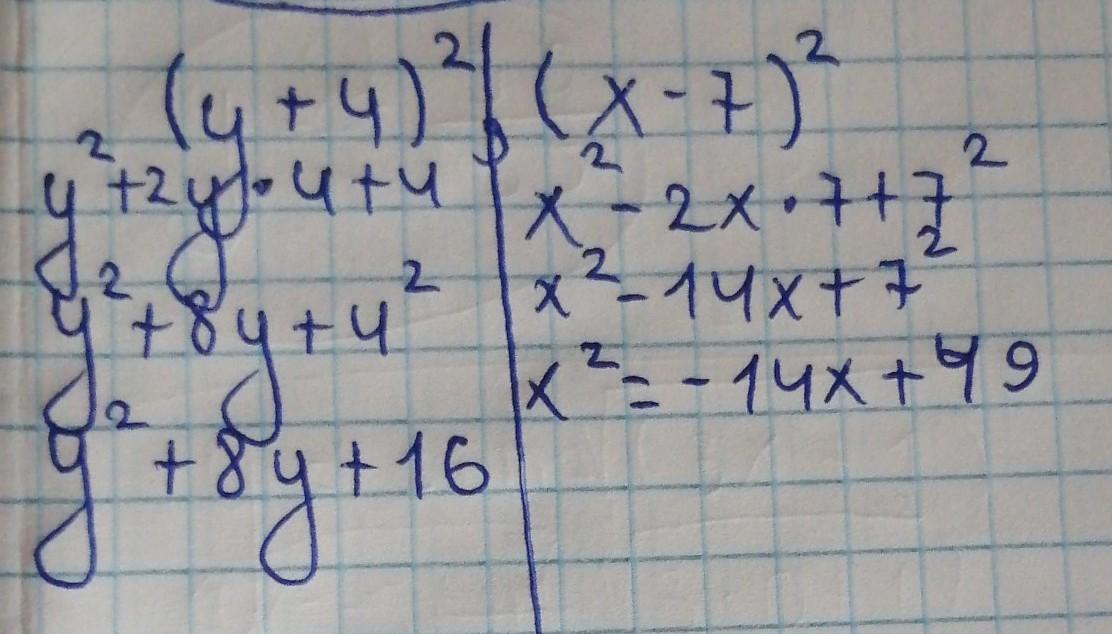 (y + 4)²
y² + 2y · 4 + 4
y² + 8y + 4²
y² + 8y + 16
(x - 7)²
x² - 2x · 7 + 7²
x² - 14x + 7²
x² = - 14x + 49